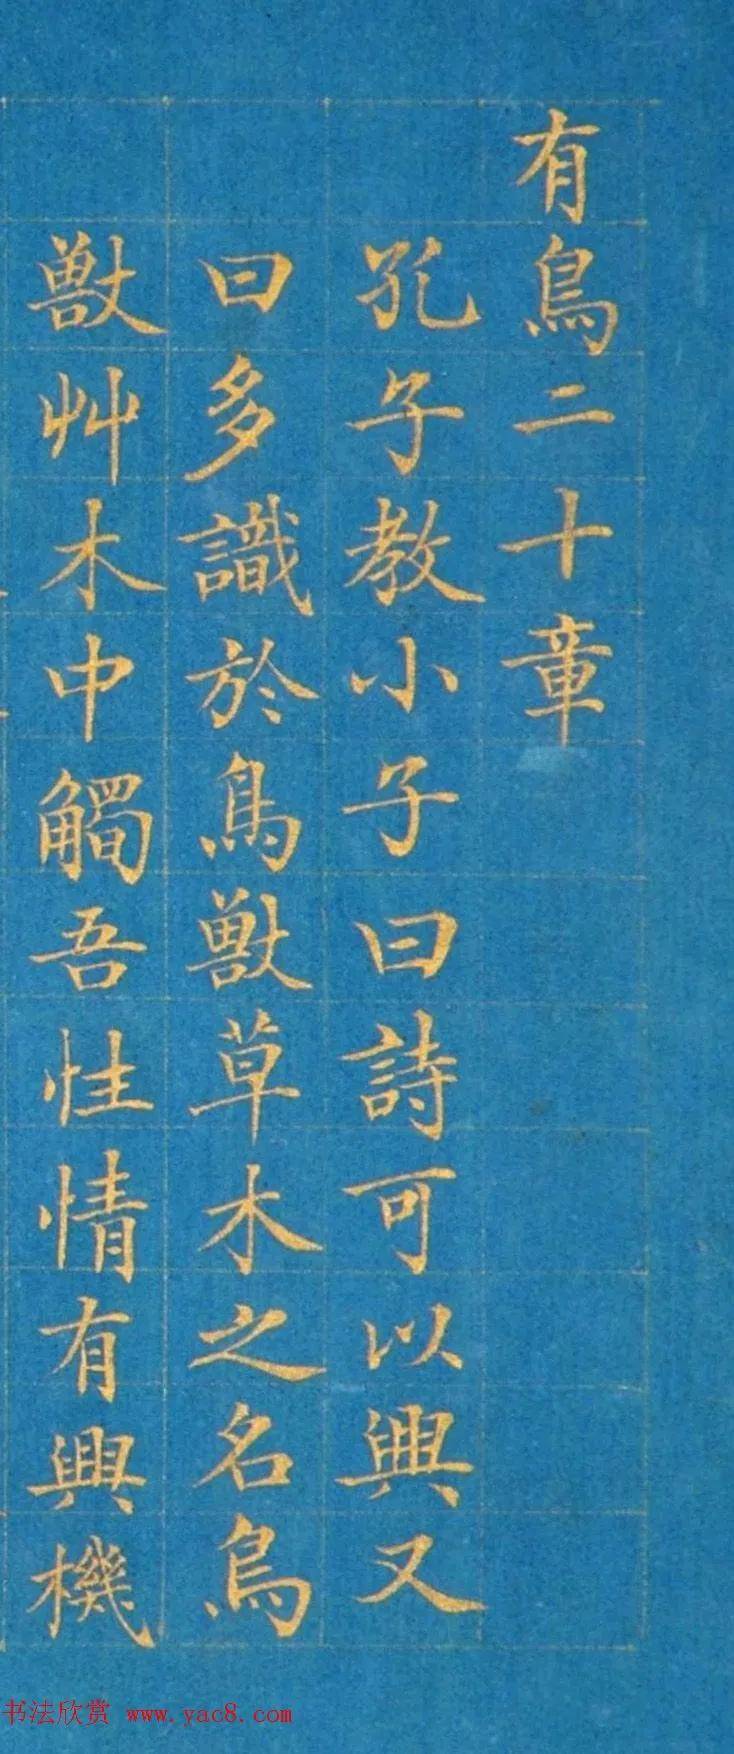 有鳥二十章
孔子教小子曰詩可以興又
曰多識於鳥獸草木之名鳥
獸艸木中觸吾性情有興機
书法欣赏 www.yac8.com